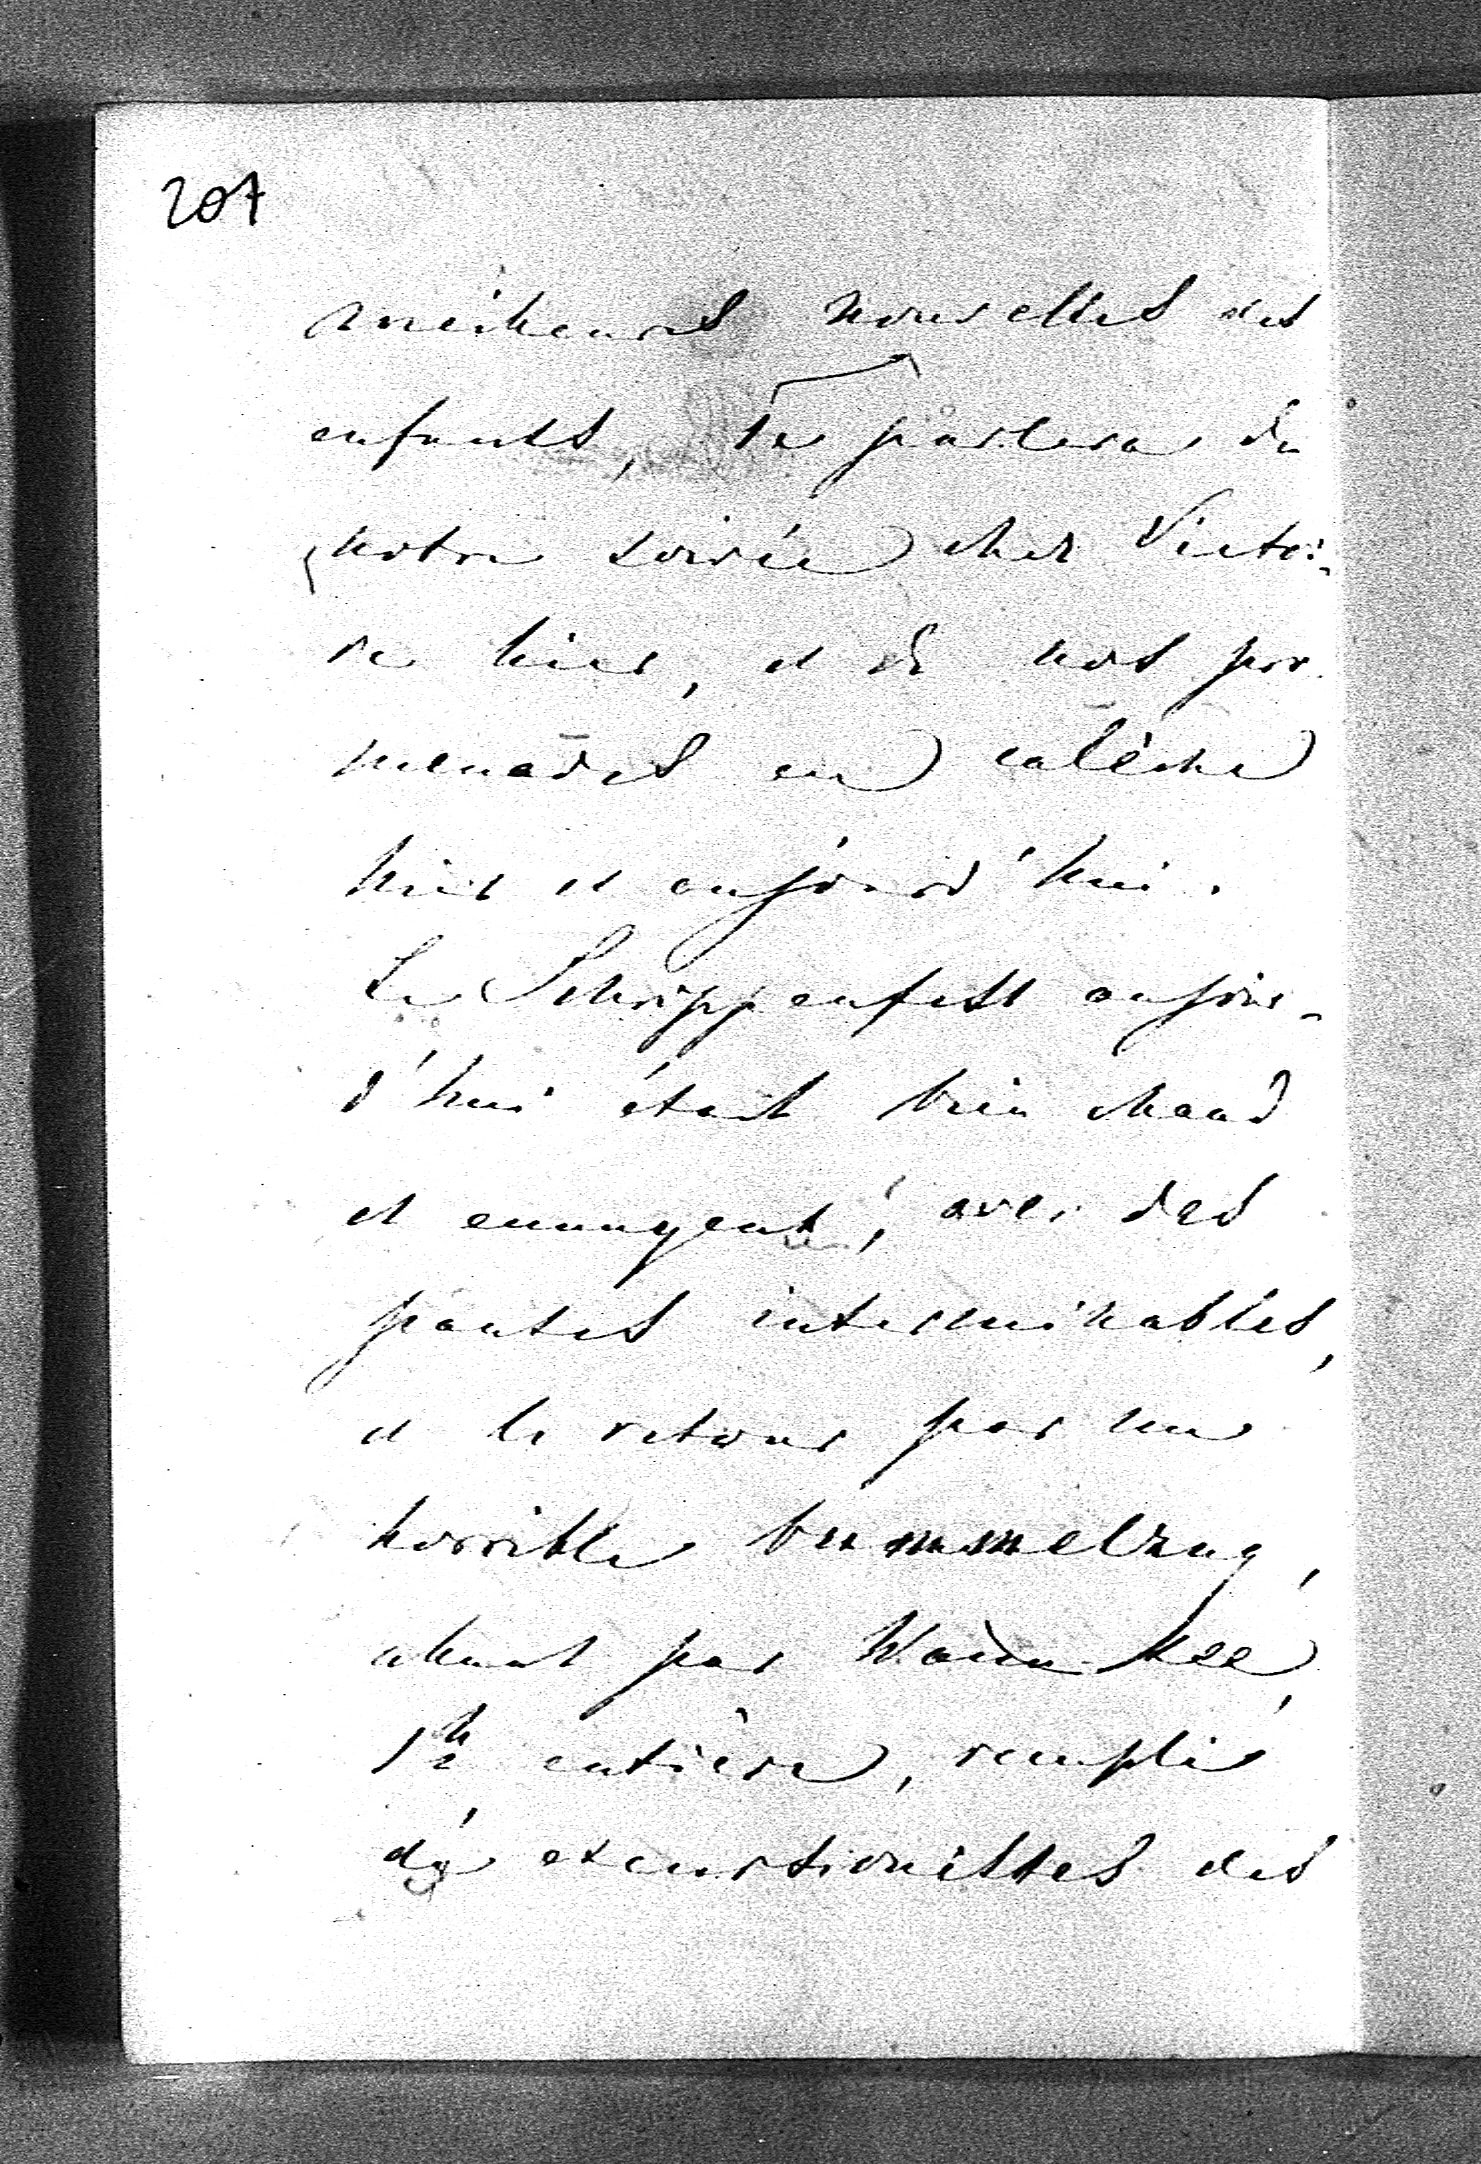 207
meilleures nouvelles des
enfants, te parlera de
notre soirée chez Victoi-
re hier, et de nos pro
menades en calèche
hier et aujourd'hui.
Le Schrippenfest aujour-
d'hui était bien chaud
et ennuyent, avec des
pauses interminables,
et le retour par un
horrible bummelzug,
allant par Wannsee,
1h entière, rempli
de excursionistes des